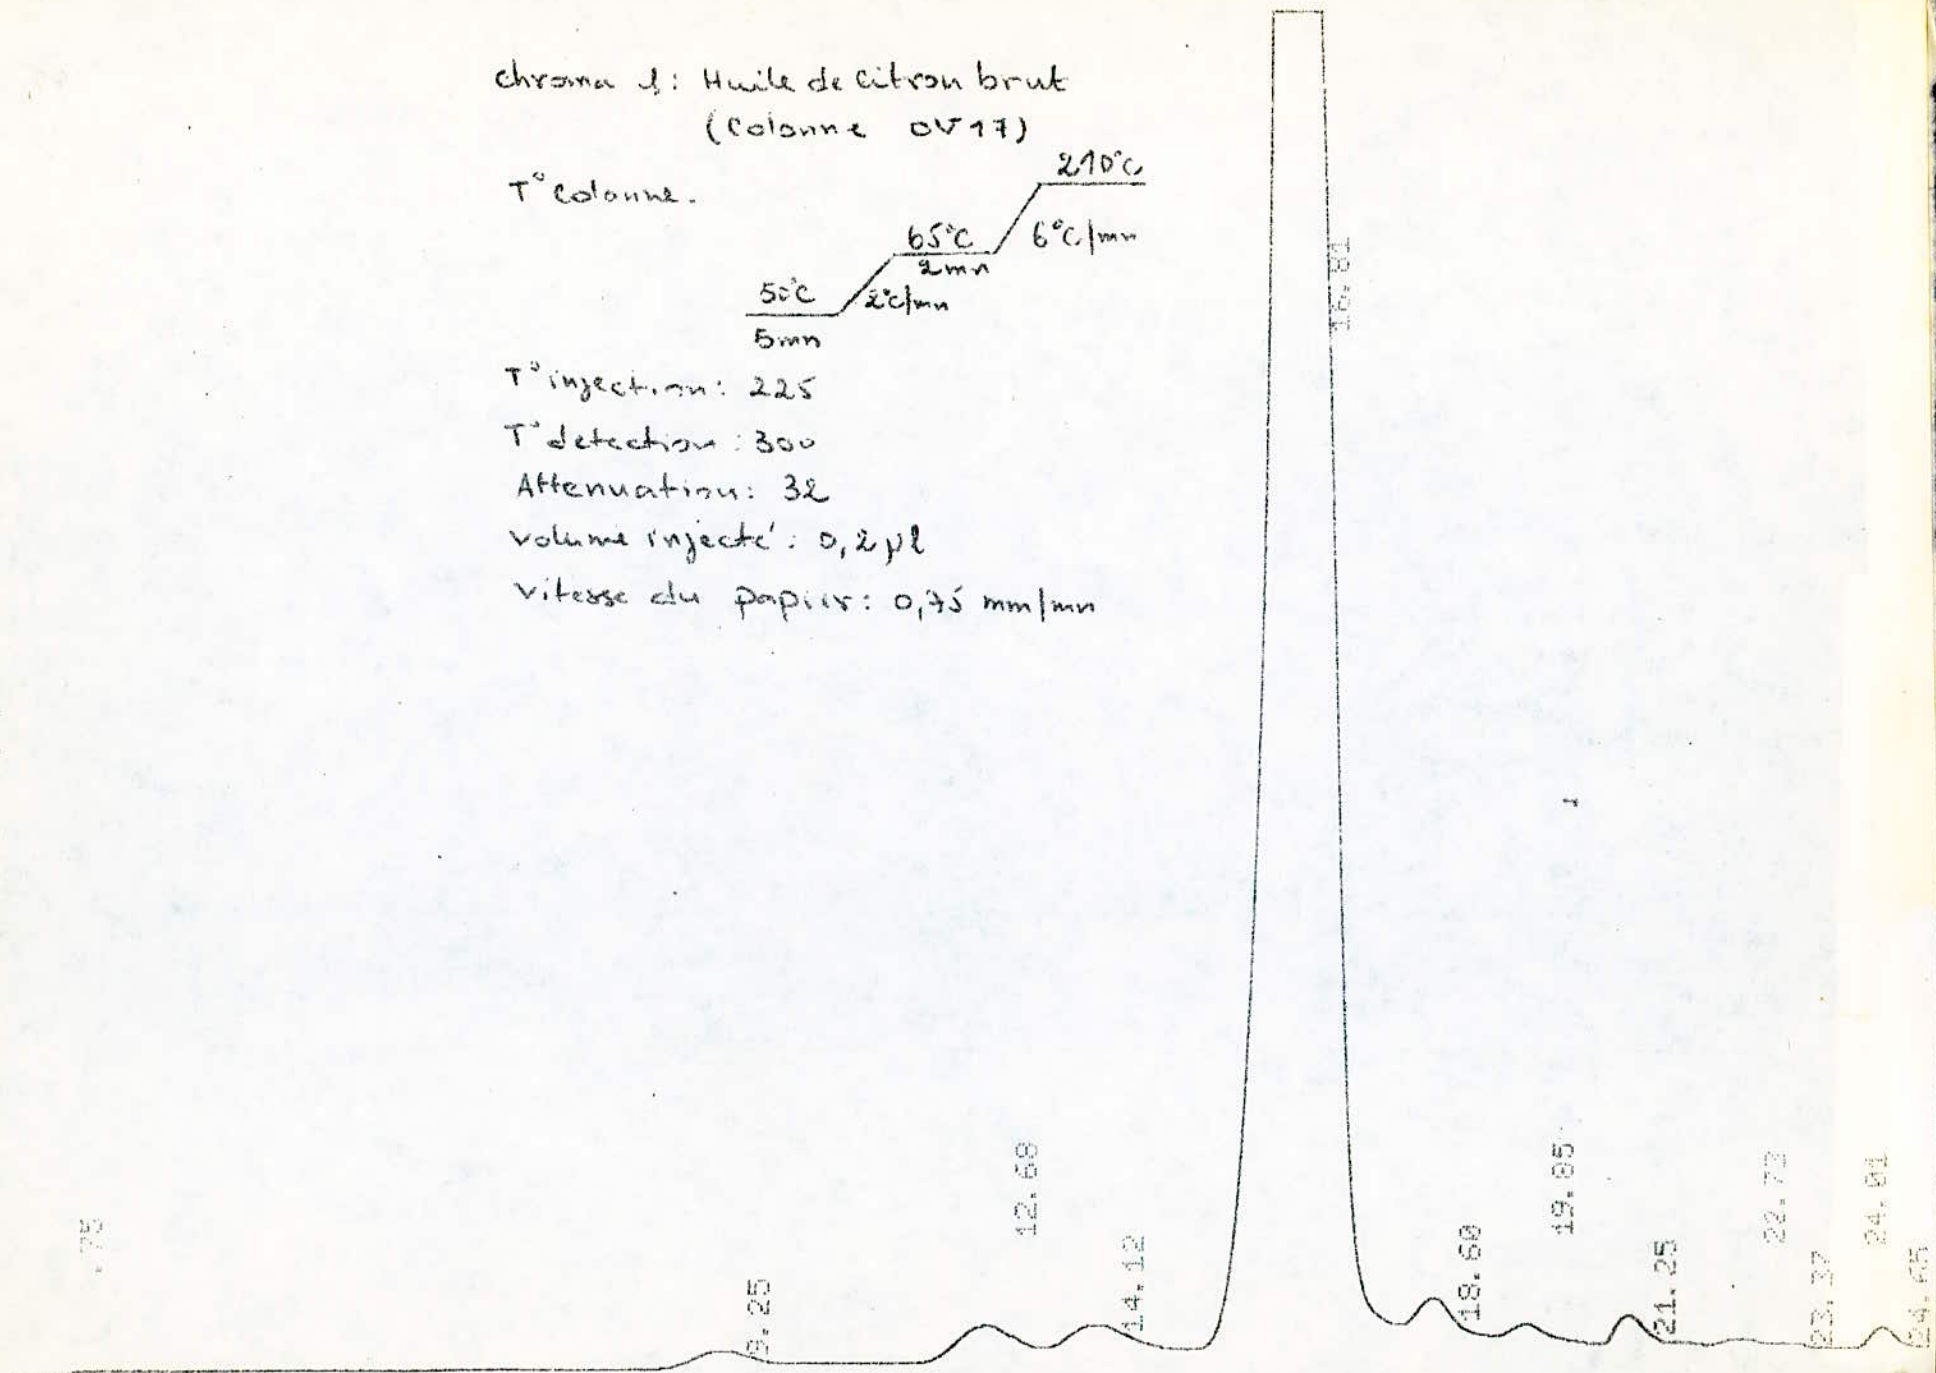 chroma 1: Huile de citron brut
(Colonne OV17)
T° Colonne.
210°C
65°C
6°C/mn
2mn
50°C
2°c/mn
5mn
T° injection: 225
T° detection: 300
Attenuation: 32
Volume injecté: 0,2 µl
Vitesse du papier: 0,75 mm/mn
16.81
.75
9.25
12.68
14.12
18.60
19.85
21.25
22.73
23.37
24.01
24.65